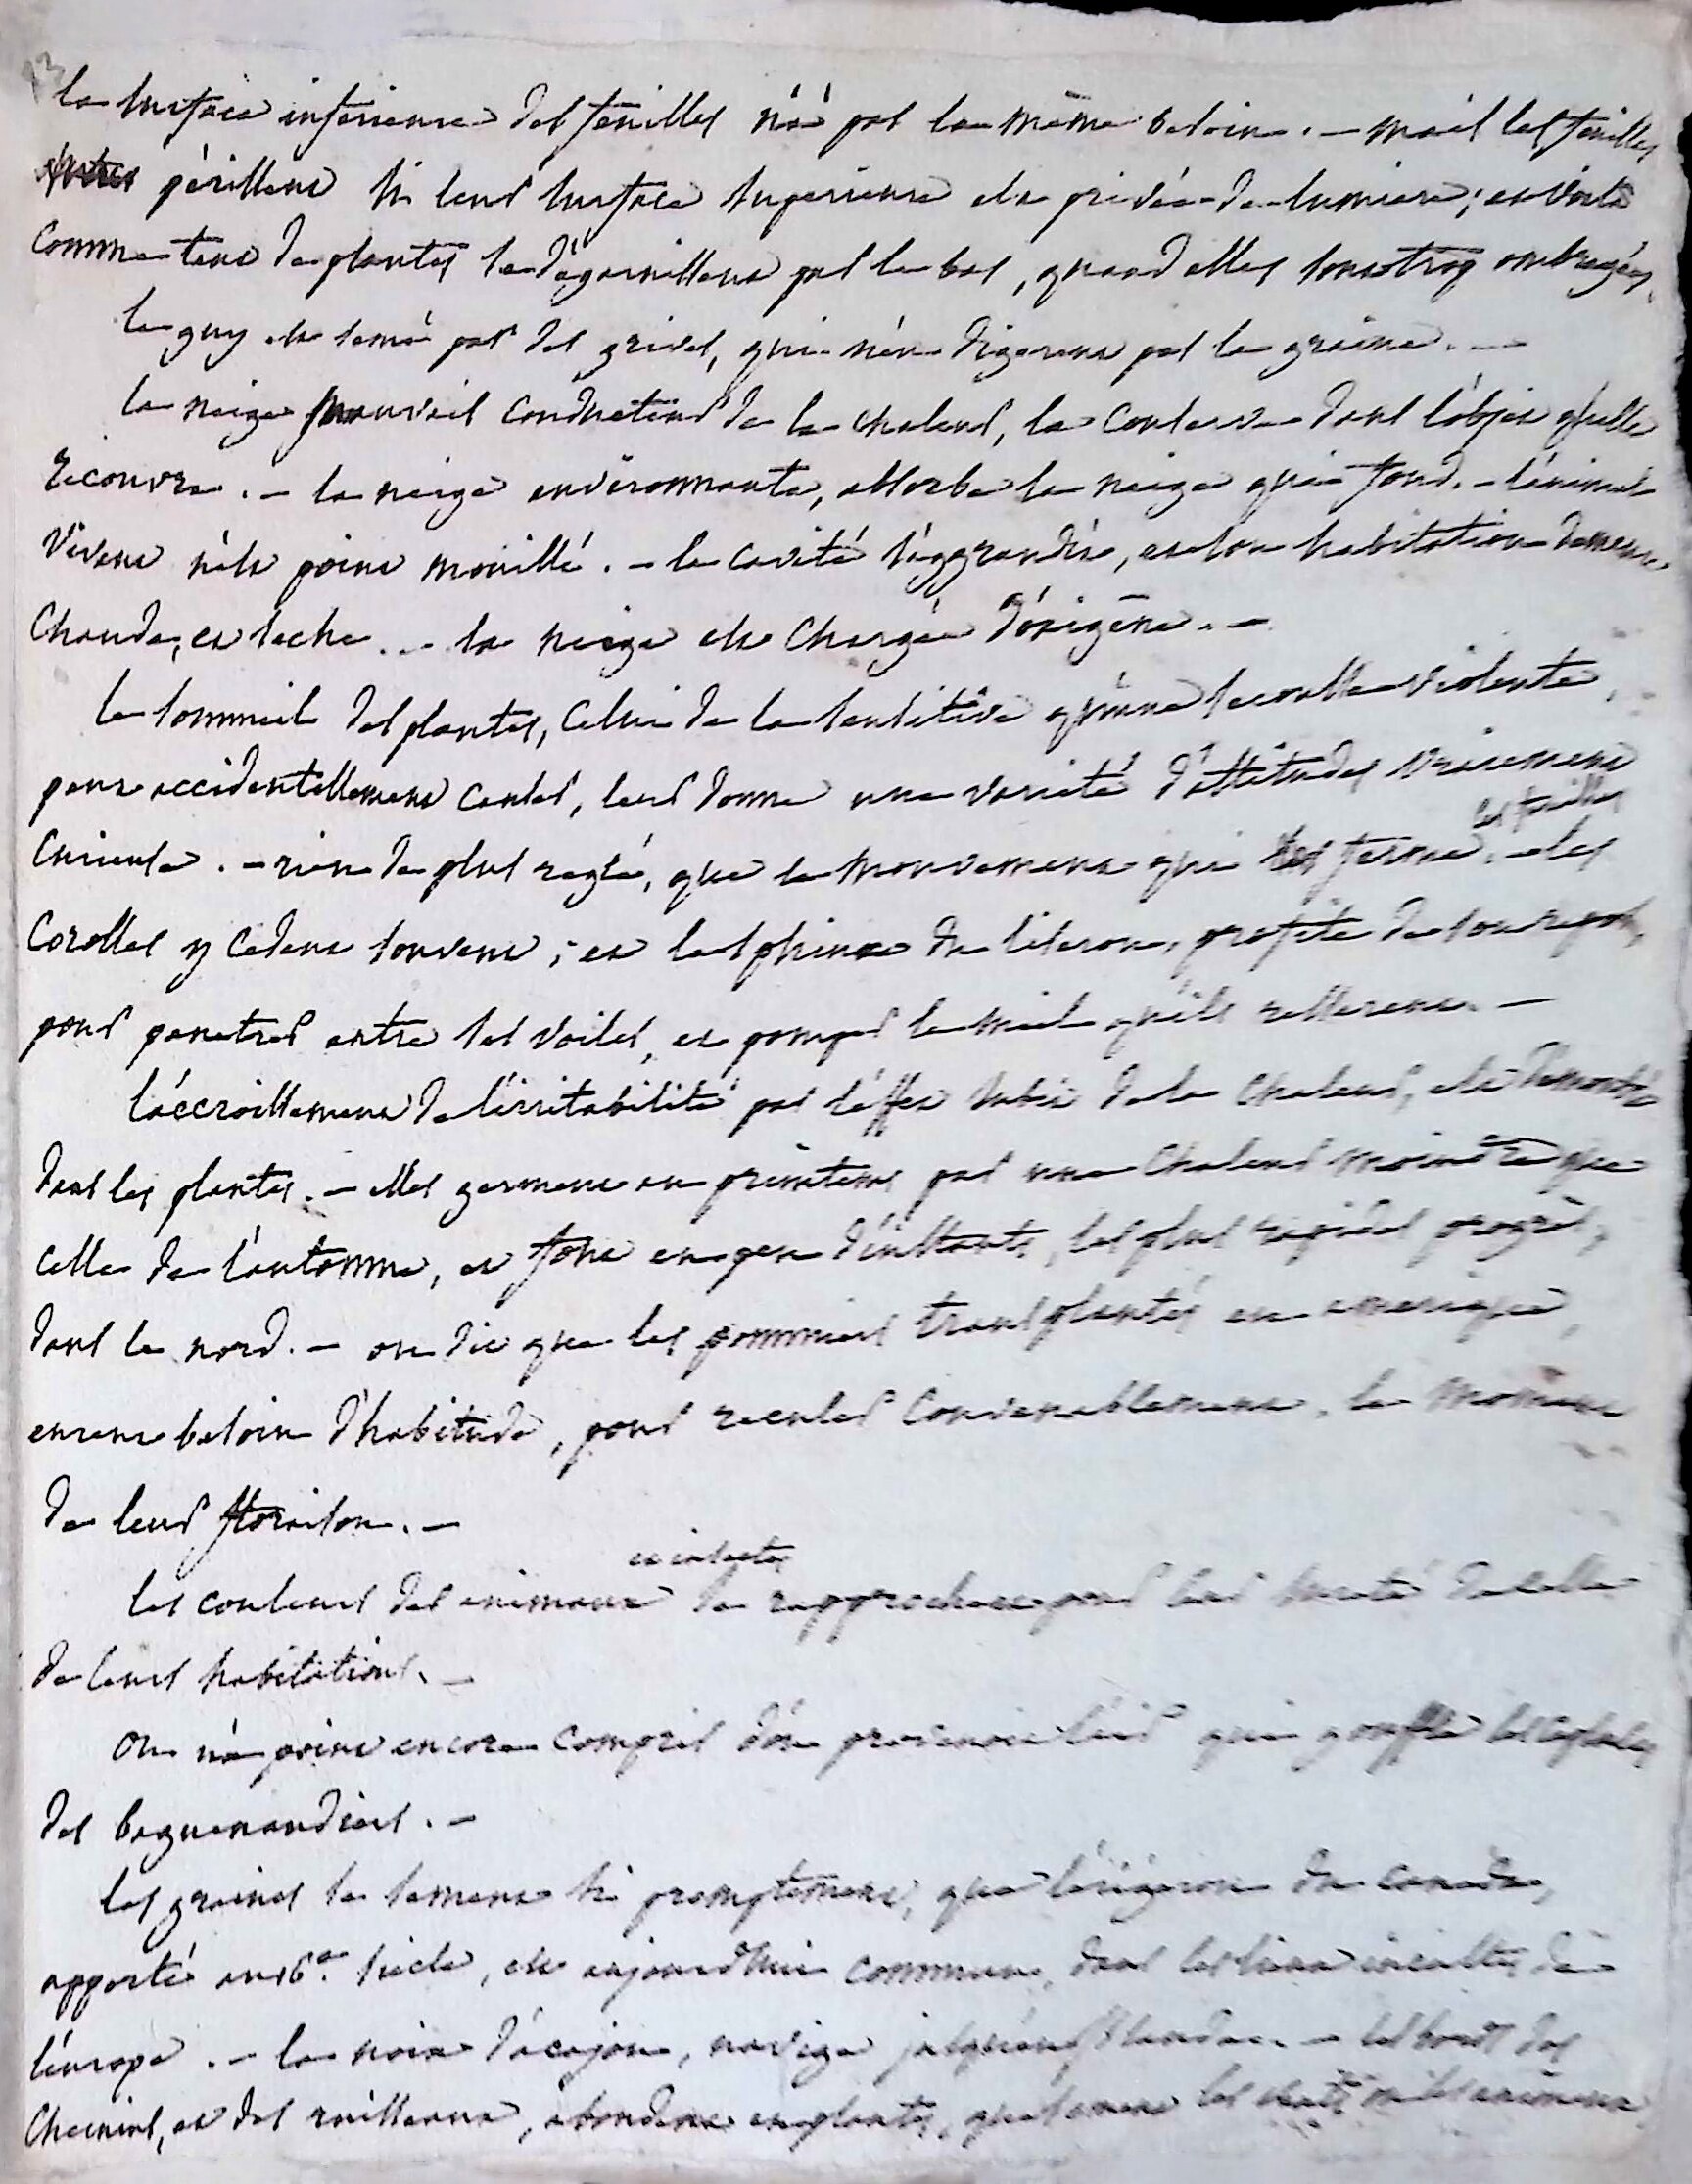 13
la surface inférieure des feuilles n'a pas le même besoin. – mais les feuilles
périssent si leur surface supérieure est privée de lumière ; et voilà
comment tant de plantes se dégarnissent par le bas, quand elles sont trop ombragées.
le guy est semé par des grives, qui n'en digerent pas la graine. –
la neige mauvais conducteur de la chaleur, la conserve dans l'objet qu'elle
recouvre. – la neige environnante, absorbe la neige qui fond. – l'animal
vivant n'est point mouillé. – la cavité s'aggrandit, et son habitation demeure
chaude, et seche. – la neige est chargée d'oxigène. –
le sommeil des plantes, celui de la sensitive qu'une secousse violente,
peut accidentellement causer, leur donne une varieté d'attitudes vraiement
curieuse. – rien de plus reglé, que le mouvement qui ferme les feuilles. – les
corolles y cedent souvent ; et le sphinx du liseron, profite de son repos,
pour penetrer entre ses voiles, et pomper le miel qu'ils resserrent. –
l'accroissement de l'irritabilité par l'effet subit de la chaleur, est demontré
dans les plantes. – elles germent au printems par une chaleur moindre que
celle de l'automne, et font en peu d'instants, les plus rapides progrès,
dans le nord. – on dit que les pommiers transplantés en amerique,
eurent besoin d'habitude, pour reculer convenablement, le moment
de leur floraison. –
les couleurs des animaux et insectes se rapprochent pour leur sureté de celle
de leurs habitations. –
on n'a point encore compris d'où provenoit l'air qui gonfle les capsules
des baguenaudiers. –
les graines se sement si promptement, que l'érigeron du canada,
apporté au 16e. siècle, est aujourd'hui commun, dans les lieux incultes de
l'europe. – la noix d'acajou, navige jusqu'en Islande. – les bords des
chemins, et des ruisseaux, abondent en plantes, que sement les vents ou les animaux